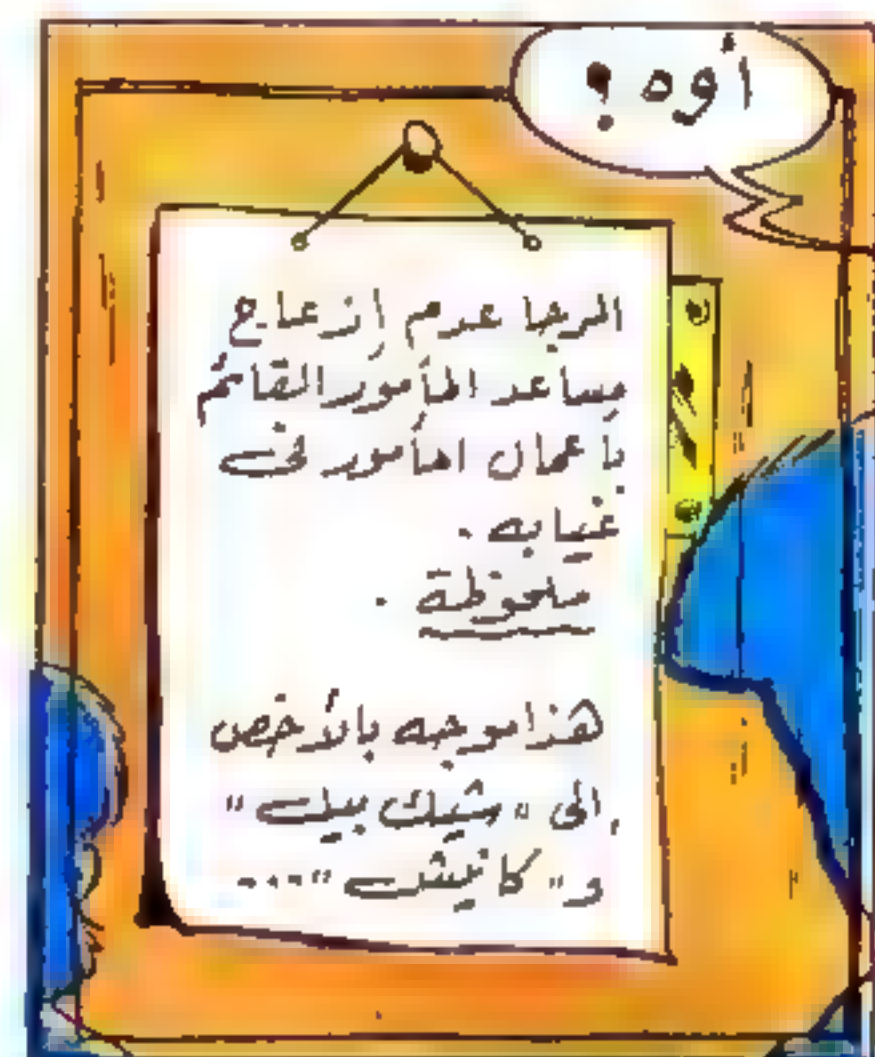 أوه ؟
الرجا عدم إزعاج
مساعد المأمور القائم
بأعمال المأمور فى
غيابه .
ملحوظة .
هذا موجه بالأخص
إلى " شيك بيك "
و " كانيش " ...